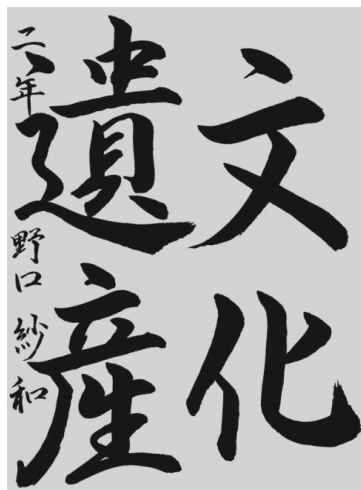 文化
遺産
二年 野口紗和